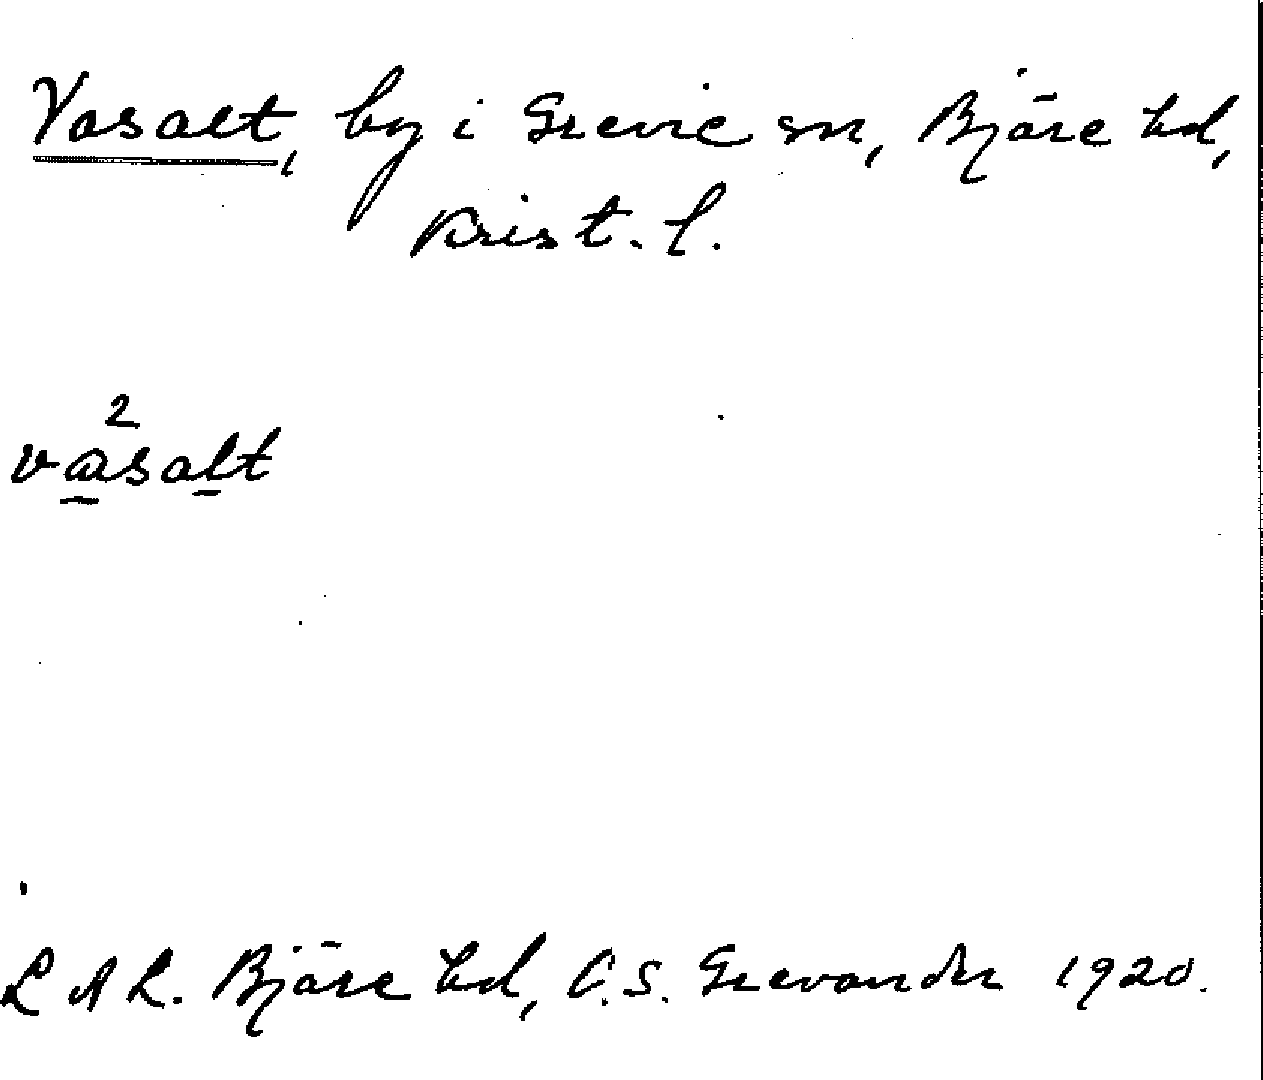 Vasalt, by i Grevie sn, Bjäre hd,
Krist. l.
2
vasalt
L A L. Bjäre hd, C. S. Grevander 1920.